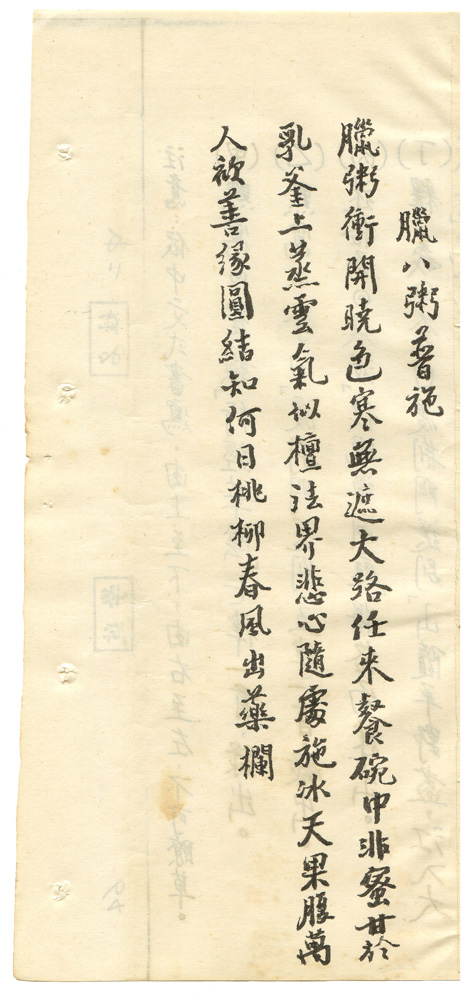 臘八粥普施
臘粥衝開曉色寒無遮大路任來餐碗中非蜜甘於
乳釜上蒸雲氣似檀法界悲心隨處施冰天果腹萬
人歡善緣圓結知何日桃柳春風出藥欄